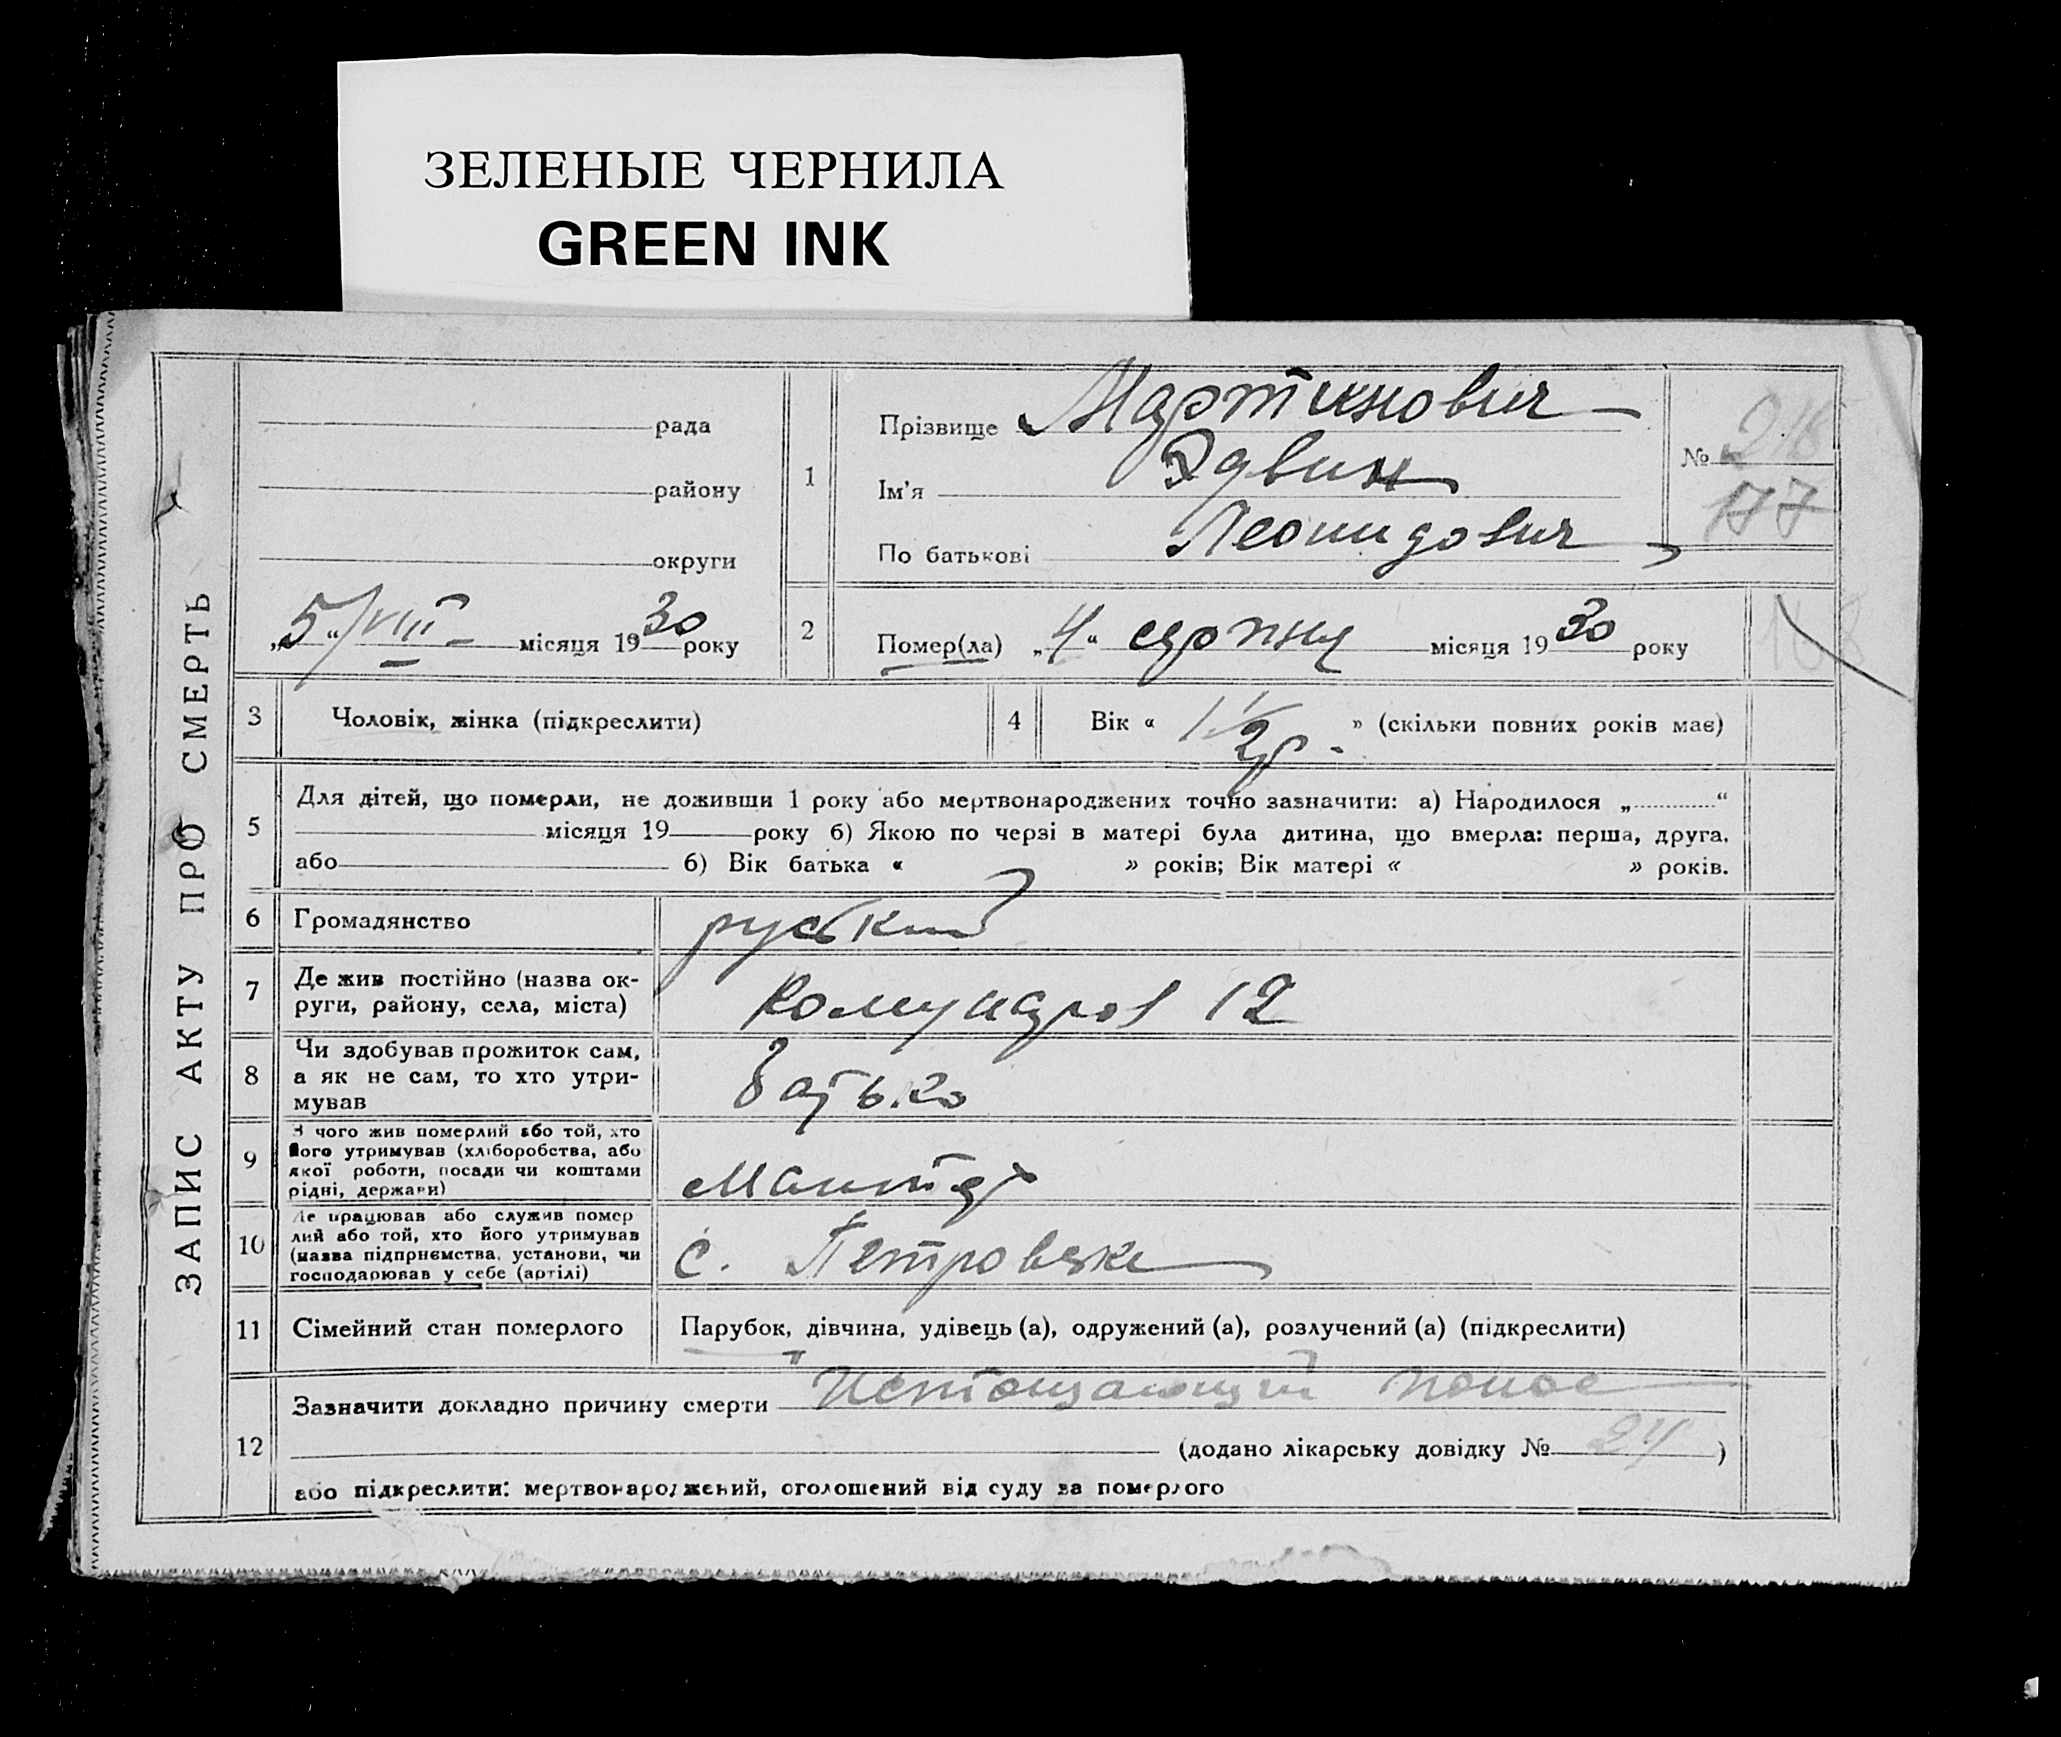 ЗЕЛЕНЫЕ ЧЕРНИЛА
GREEN INK
ЗАПИС АКТУ ПРО СМЕРТЬ
рада
району
округи
„5“/VIII- місяця 1930 року
1
Прізвище Мартинович
Ім'я Эдвин
По батькові Леонидович
№ 216
177
2
Помер(ла) „4“ серпня місяця 1930 року
168
3 Чоловік, жінка (підкреслити)
4 Вік « 1 1/2 р. » (скільки повних років має)
5
Для дітей, що померли, не доживши 1 року або мертвонароджених точно зазначити: а) Народилося „ “
місяця 19 року б) Якою по черзі в матері була дитина, що вмерла: перша, друга,
або б) Вік батька « » років; Вік матері « » років.
6 Громадянство руський
7 Де жив постійно (назва ок-
руги, району, села, міста)
Комунаров 12
8 Чи здобував прожиток сам,
а як не сам, то хто утри-
мував
Батько
9 З чого жив померлий або той, хто
його утримував (хліборобства, або
якої роботи, посади чи коштами
рідні, держави)
Маляр
10 Де працював або служив помер
лий або той, хто його утримував
(назва підприємства, установи, чи
господарював у себе (артілі)
с. Петровске
11 Сімейний стан померлого Парубок, дівчина, удівець (а), одружений (а), розлучений (а) (підкреслити)
12 Зазначити докладно причину смерти Истощающий понос
(додано лікарську довідку № 24 )
або підкреслити: мертвонароджений, оголошений від суду за померлого